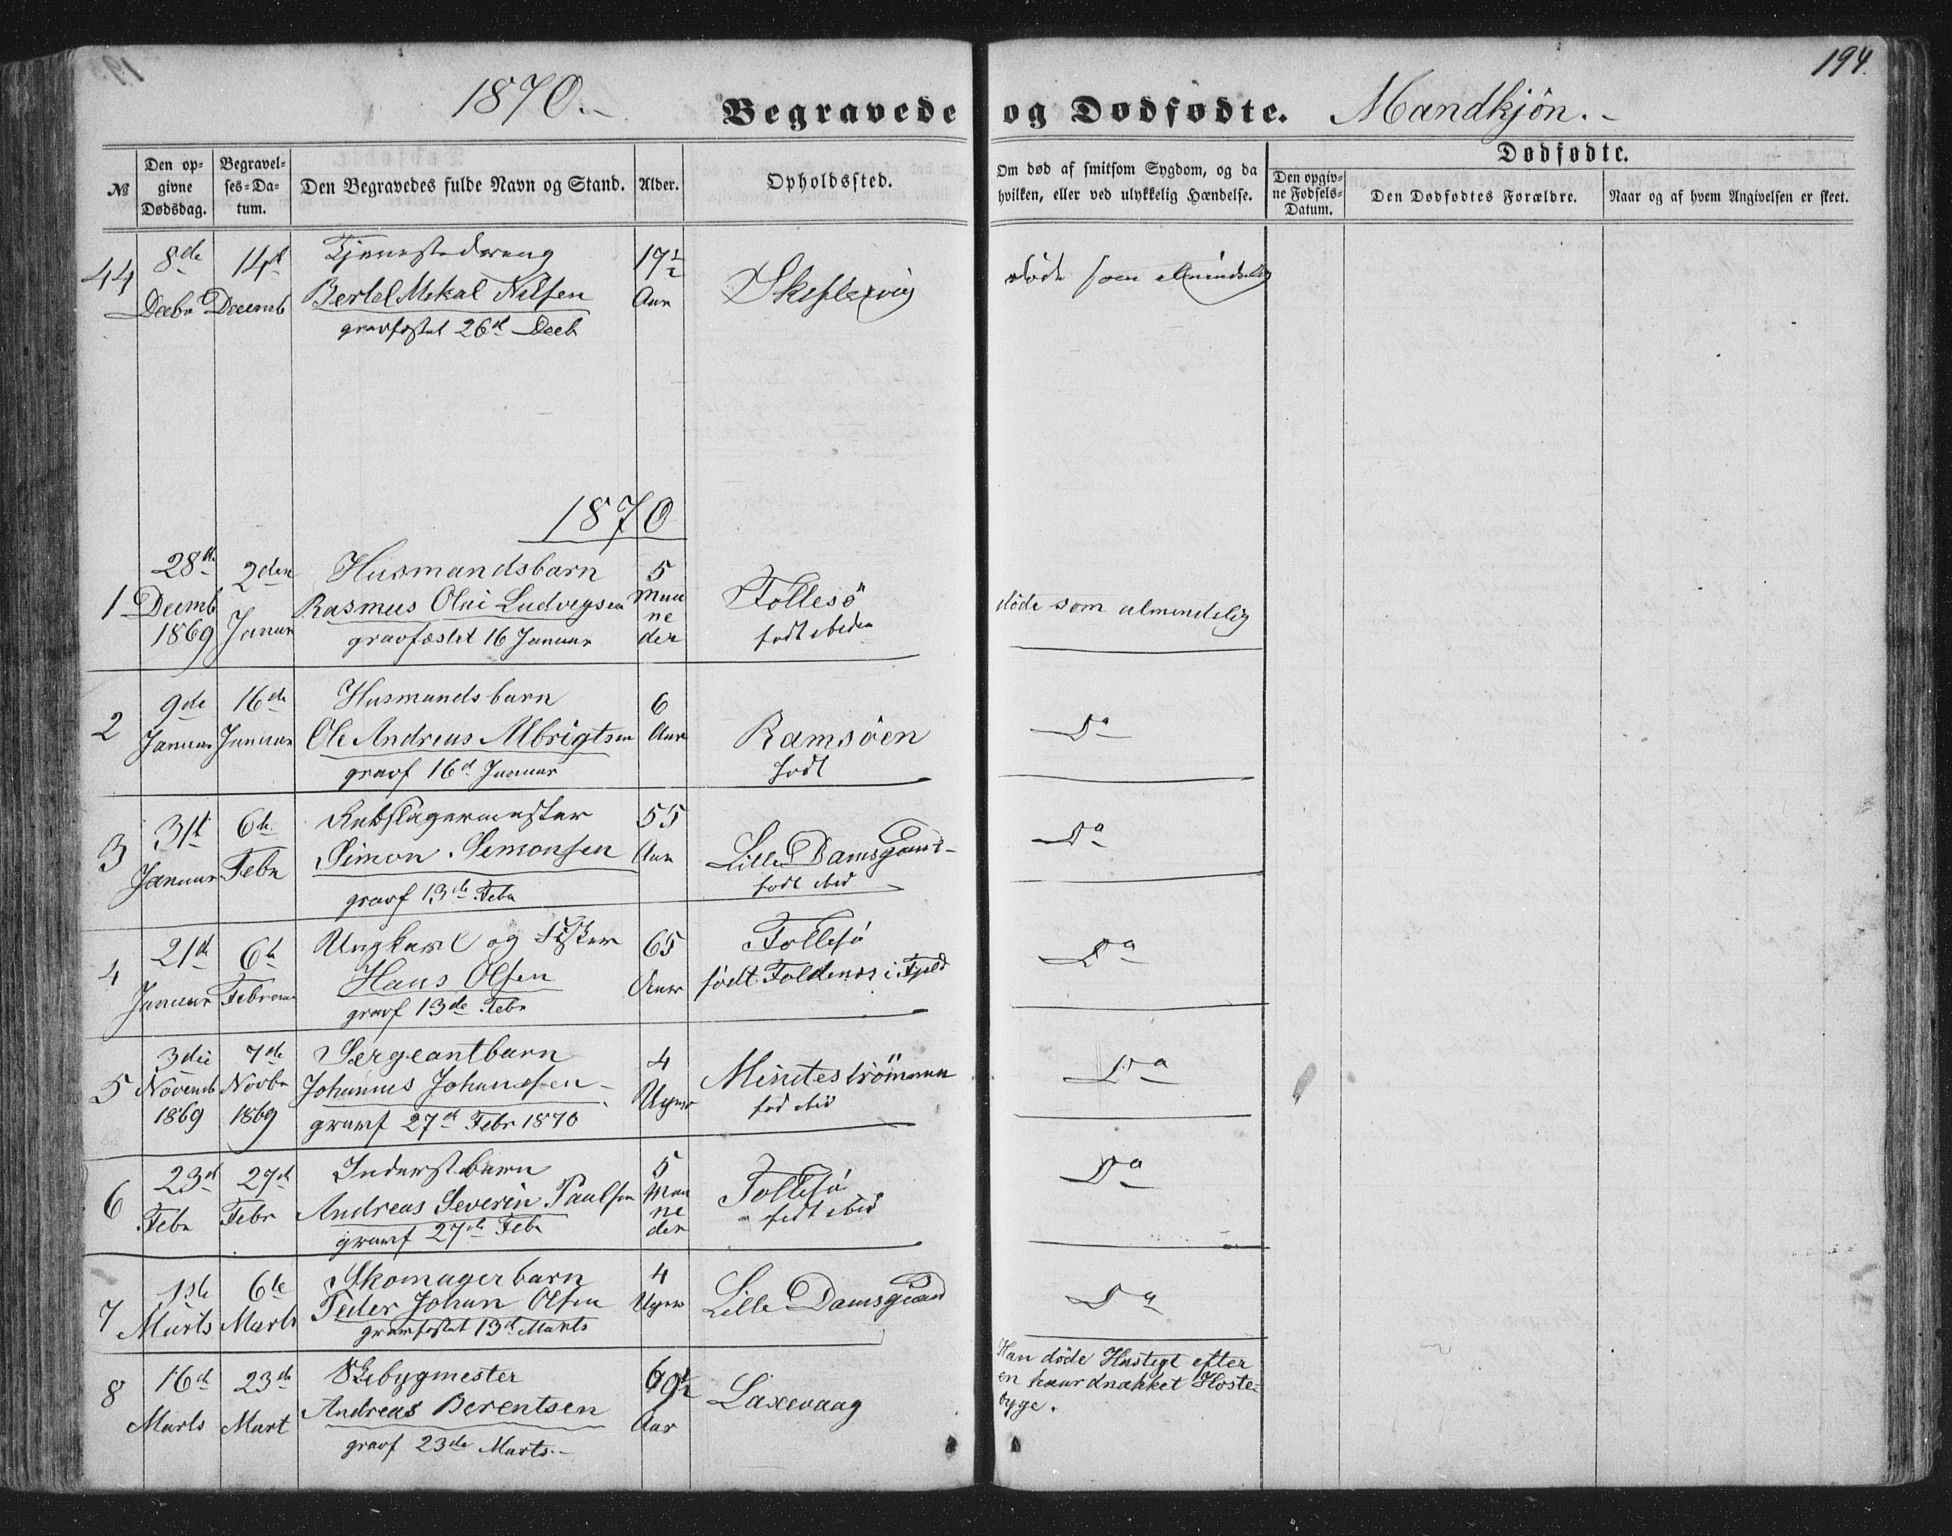 194.
1870.-
Begravede og Dødfødte. Mandkjön.-
№
Den opgivne Dødsdag.
Begravelses-Datum.
Den Begravedes fulde Navn og Stand.
Alder.
Opholdssted.
Om død af smitsom Sygdom, og da
hvilken, eller ved ulykkelig Hændelse.
Dødfødte.
Den opgivne Fødsels-Datum.
Den Dødfødtes Forældre.
Naar og af hvem Angivelsen er skeet.
44 8de Decbr 14d Decemb
Tjenestedreng
Bertel Mekal Nilsen
gravfæstet 26d Decb
17½ Aar
død som almindelig
1870
1 28de Decemb 1869 2den Januar
Husmandsbarn
Rasmus Olai Ludvigsen
gravfæstet 16 Januar
5 Maaneder
Follesö
født ibiden
döde som almendelig
2 9de Januar 16de Januar
Husmandsbarn
Ole Andreas Albrigtsen
gravf 16d Januar
6 Aar
Ramsöen
født
Do
3 31t Januar 6te Febr
Rebslagermester
Simon Simonsen
gravf 13de Febr
55 Aar
Lille Damsgaard
født ibid
Do
4 21d Januar 6te Februar
Ungkarl og Fisker
Hans Olsen
gravf 13de Febr
65 Aar
Follesö
født Foldenæs i Fjeld
Do
5 3die Novemb 1869 7de Novbr 1869
Sergeantbarn
Johannes Johannesen
gravf 27d Febr 1870
4 Uger
Mindeströmmen
fød ibid
Do
6 23d Febr 27d Febr
Inderstbarn
Andreas Severin Paulsen
gravf 27de Febr
5 Maaneder
Follesö
født ibid
Do
7 1ste Marts 6te Marts
Skomagerbarn
Peder Johan Olsen
gravfæstet 13d Marts
4 Uger
Lille Damsgaard
Do
8 16d Marts 23de Mart
Skibygmester
Andreas Berentsen
gravf 23de Marts-
69½ Aar
Laxevaag
Han døde Hastigt efter
en haardnakket Hoste-
byge.